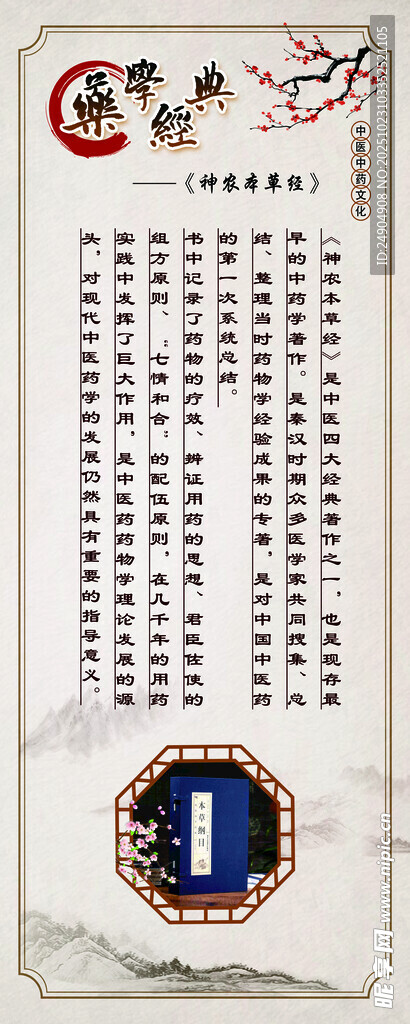 藥學經典
——《神农本草经》
中医中药文化
《神农本草经》是中医四大经典著作之一，也是现存最
早的中药学著作。是秦汉时期众多医学家共同搜集、总
结、整理当时药物学经验成果的专著，是对中国中医药
的第一次系统总结。
书中记录了药物的疗效、辨证用药的思想、君臣佐使的
组方原则、“七情和合”的配伍原则，在几千年的用药
实践中发挥了巨大作用，是中医药药物学理论发展的源
头，对现代中医药学的发展仍然具有重要的指导意义。
本草纲目
昵享网 www.nipic.cn
ID:24904908 NO:20251023103352521105